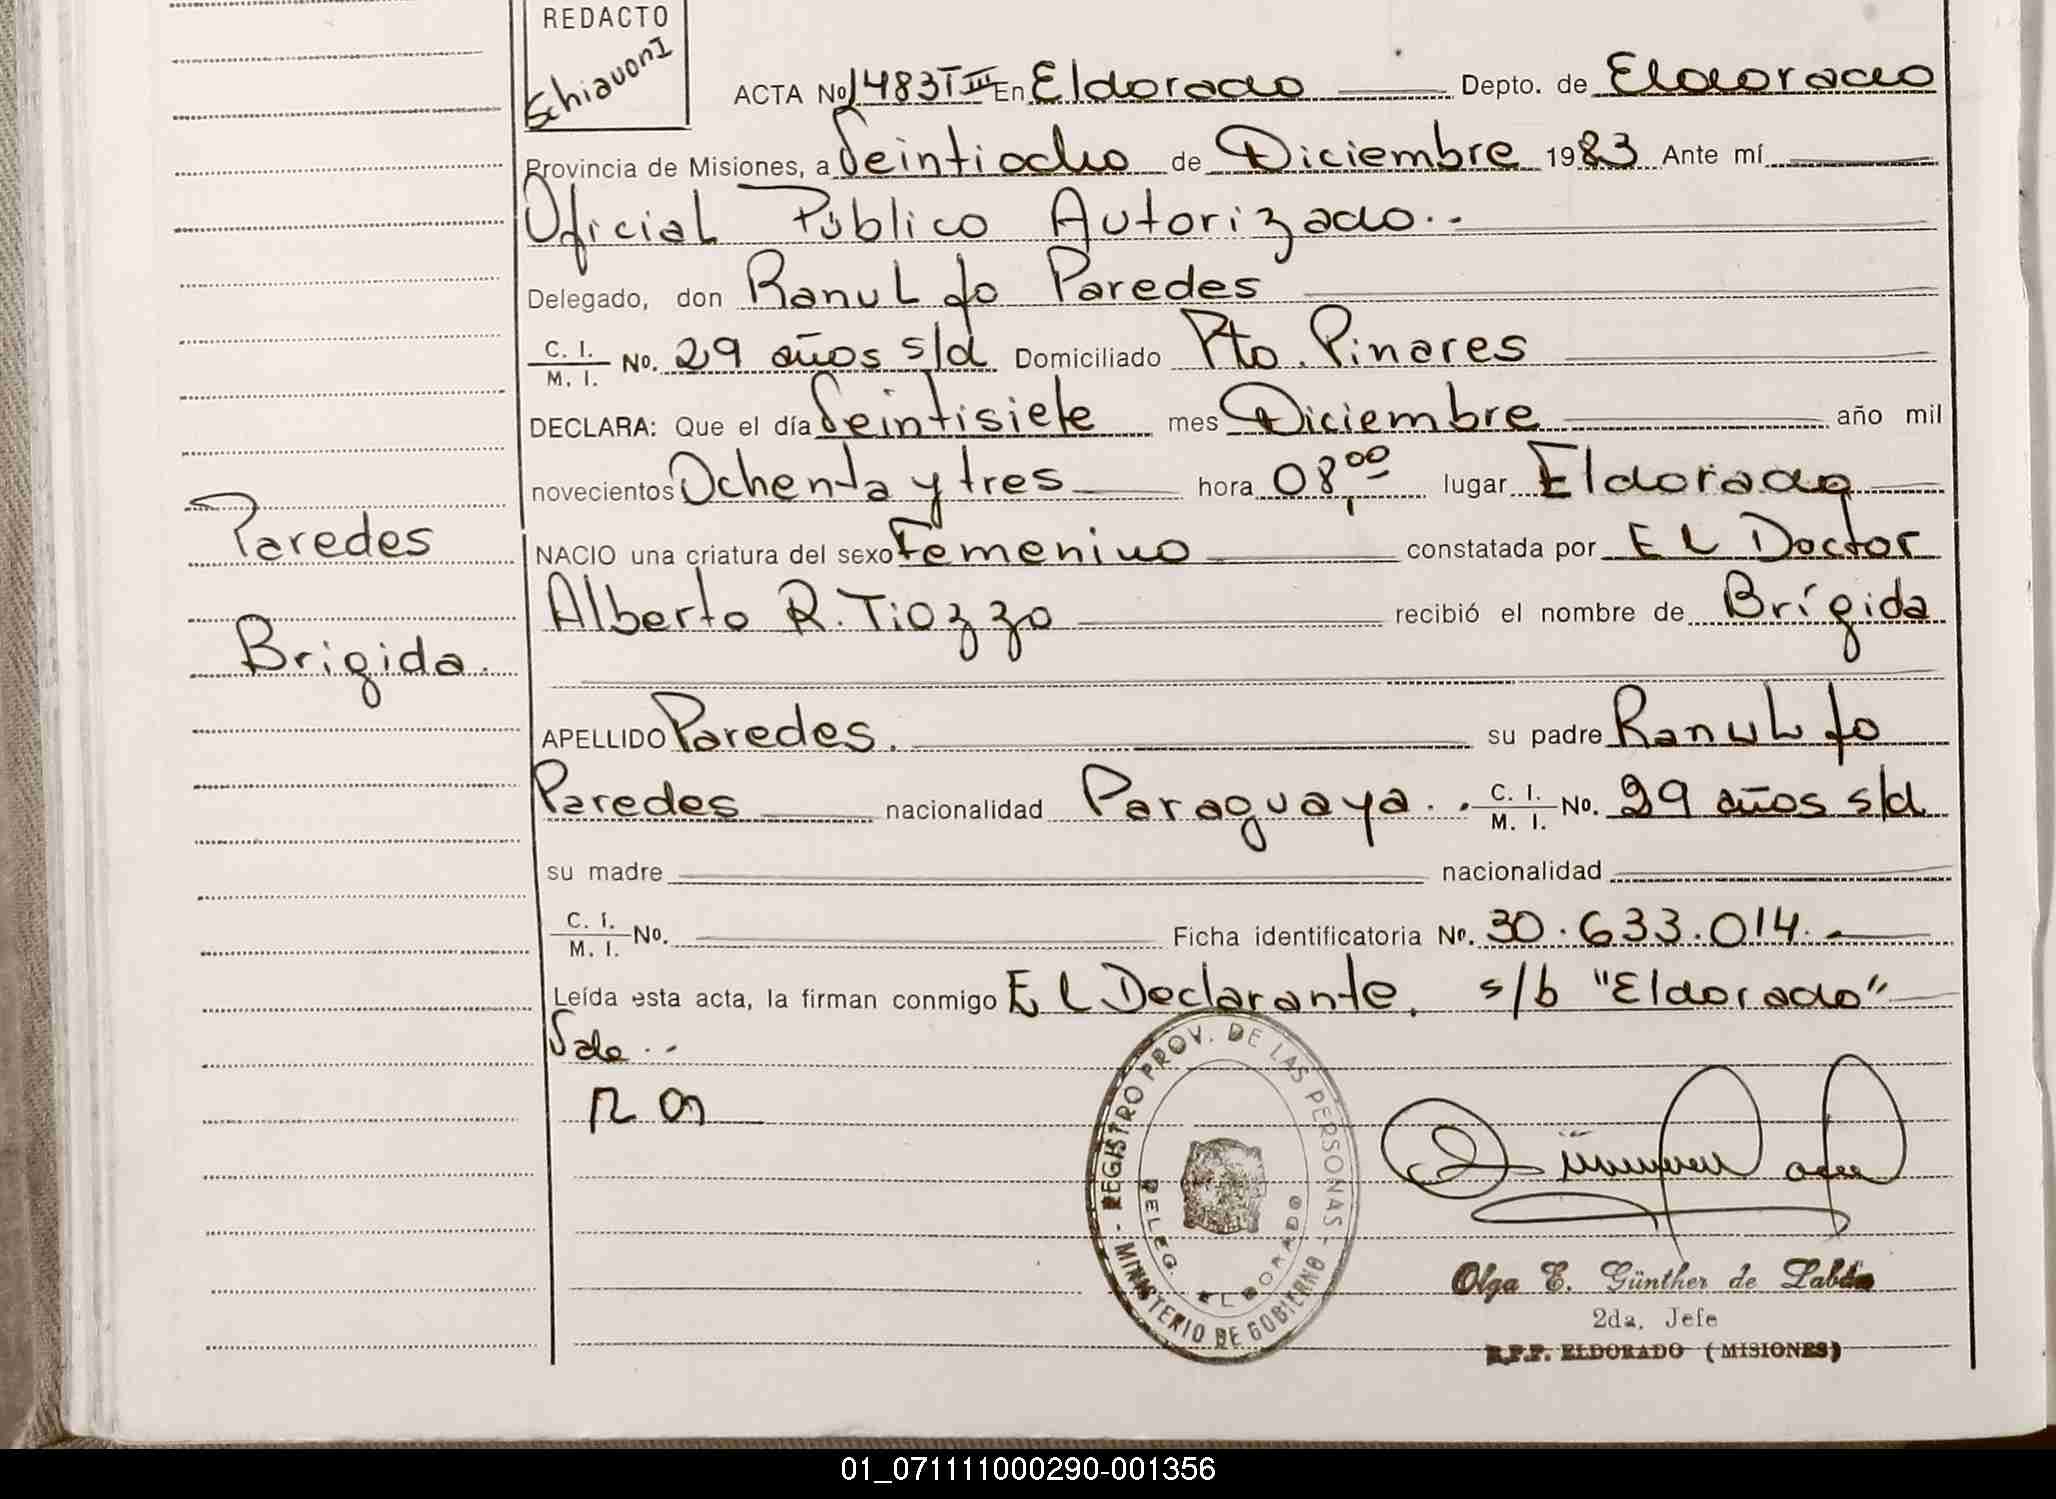 REDACTO
Schiavoni
ACTA No 1483 T III En Eldorado Depto. de Eldorado
Provincia de Misiones, a Veintiocho de Diciembre 1983 Ante mí
Oficial Público Autorizado..
Delegado, don Ranulfo Paredes
C. I. / M. I. No. 29 años s/d Domiciliado Pto. Pinares
DECLARA: Que el día Veintisiete mes Diciembre año mil
novecientos Ochenta y tres hora 08,00 lugar Eldorado
Paredes
NACIO una criatura del sexo Femenino constatada por El Doctor
Alberto R. Tiozzo recibió el nombre de Brígida
Brigida.
APELLIDO Paredes. su padre Ranulfo
Paredes nacionalidad Paraguaya.. C. I. / M. I. No. 29 años s/d
su madre nacionalidad
C. I. / M. I. No. Ficha identificatoria No. 30.633.014.-
Leída esta acta, la firman conmigo El Declarante. s/b "Eldorado"
Vale..
REGISTRO PROV. DE LAS PERSONAS - MINISTERIO DE GOBIERNO -
DELEG. ELDORADO
Olga E. Günther de Labda
2da. Jefe
R.P.P. ELDORADO (MISIONES)
01_071111000290-001356